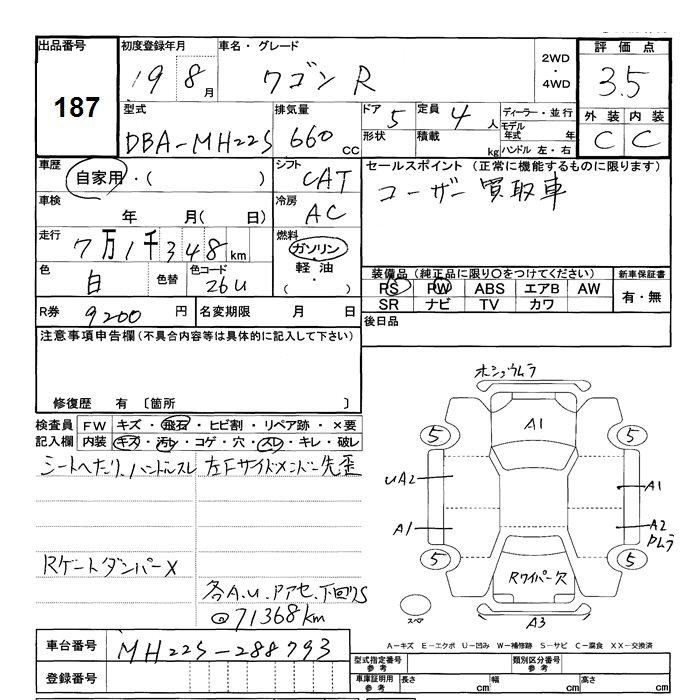 出品番号 初度登録年月 車名・グレード 2WD・4WD 評価点
187 19 8月 ワゴン R 3.5
型式 排気量 ドア 5 定員 4人 ディーラー・並行 外装 内装
DBA-MH22S 660cc 形状 積載 kg モデル年式 年 ハンドル 左・右 C C
車歴 自家用・( ) シフト CAT セールスポイント (正常に機能するものに限ります)
ユーザー買取車
車検 年 月( 日) 冷房 AC
走行 7万1千348km 燃料 ガソリン・軽油・( )
色 白 色替 色コード 26U 装備品(純正品に限り○をつけてください) 新車保証書
PS PW ABS エアB AW 有・無
SR ナビ TV カワ
R券 9200円 名変期限 月 日 後日品
注意事項申告欄(不具合内容等は具体的に記入して下さい)
修復歴 有 〔箇所 〕
検査員記入欄 FW キズ・飛石・ヒビ割・リペア跡・×要
内装 キズ・汚レ・コゲ・穴・スレ・キレ・破レ
シートヘタリ、ハンドルスレ 左Fサイドメンバー先歪
Rゲートダンパー×
各A.U.Pアセ、下回りS
@71368km
ボンゴウムラ
A1
5 5
UA2 A1
A1 A2
Pムラ
5 5
Rワイパー欠
スペア A3
A-キズ E-エクボ U-凹み W-補修跡 S-サビ C-腐食 XX-交換済
車台番号 MH22S-288793
登録番号
型式指定番号 参考 類別区分番号 参考
車庫証明用 参考 長さ cm 幅 cm 高さ cm